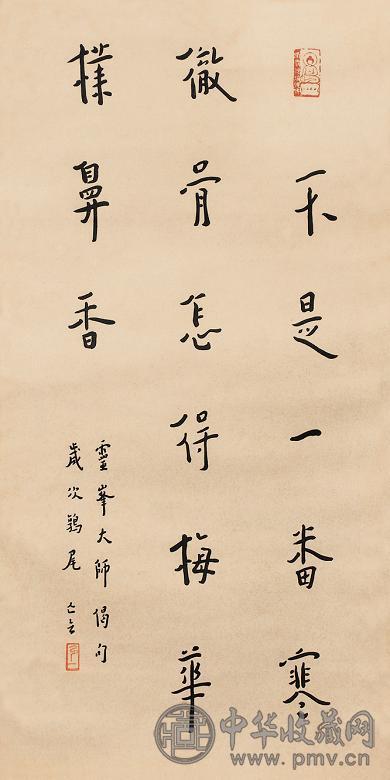 不是一番寒
徹骨怎得梅華
樸鼻香
靈峯大師偈句
歲次鶉尾 亡言
弘一
中华收藏网
www.pmv.cn